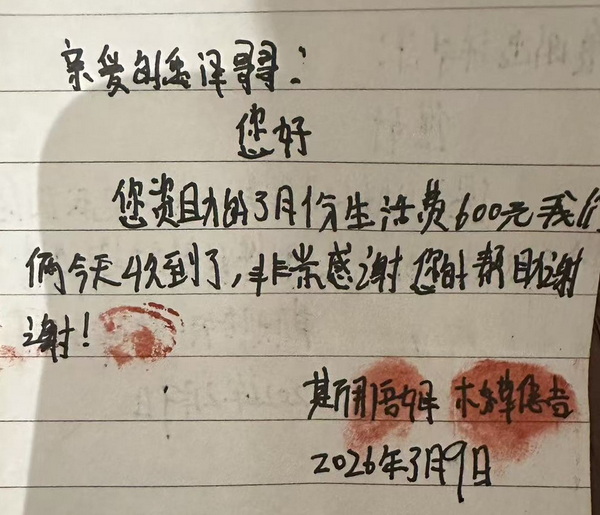 亲爱的 泽哥哥：
您好
您资助的3月份生活费600元我们
俩今天收到了，非常感谢您的帮助谢
谢！
2026年3月9日